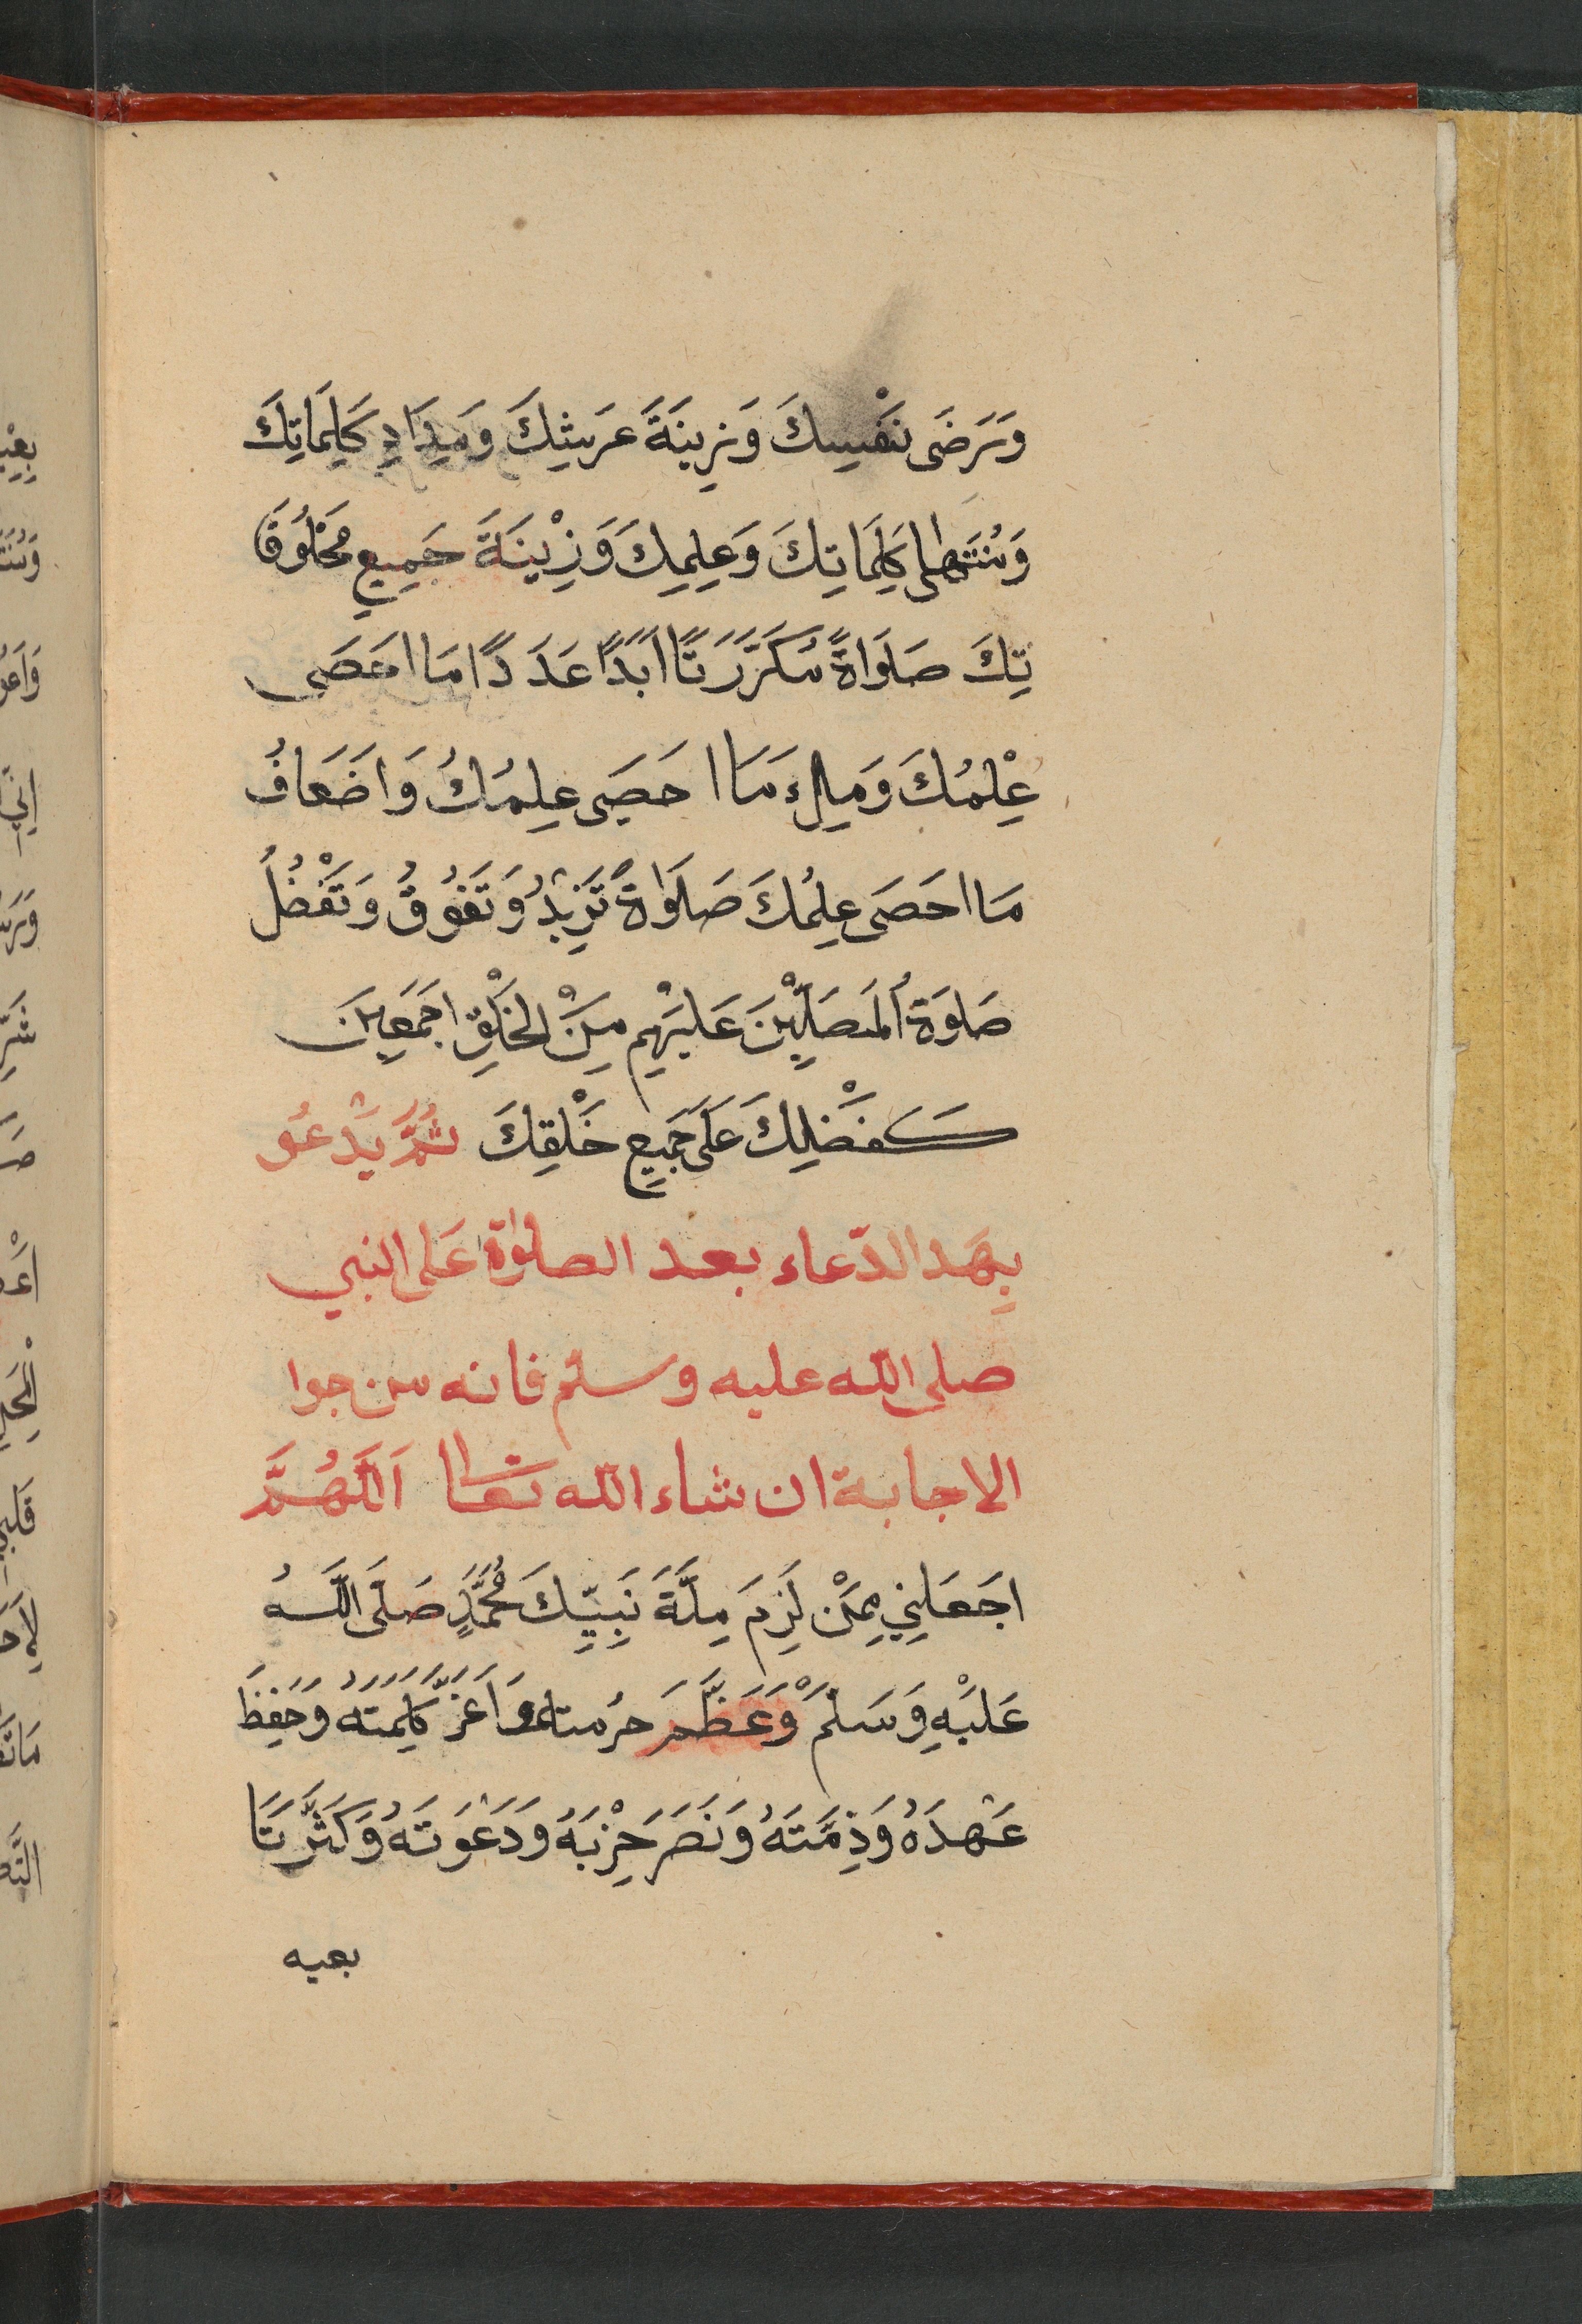 وَرَضَى نَفْسِكَ وَزِينَةَ عَرشِكَ وَمِدَادِ كَلِمَاتِكَ
وَمُنْتَهٰى كَلِمَاتِكَ وَعِلمِكَ وَزِيْنَةَ جَمِيعِ مَخْلُوقَا
تِكَ صَلَوَاةً مُكَرَّرَتًا اَبَدًا عَدَدًا مَا احَصَى
عِلْمُكَ وَمِلءَ مَا احَصَى عِلمُكَ وَاضَعَافُ
مَا احَصَى عِلمُكَ صَلَوَاةً تَزِيْدُ وَتَفُوقُ وَتَفْضُلُ
صَلوَةَ المُصَلِّيْنَ عَلَيْهِم مِنْ الخَلْقِ اجَمَعِينَ
كَفَضْلِكَ عَلَى جَمِيعِ خَلْقِكَ ثُمَّ يَدْعُو
بِهَذا الدّعاء بعد الصلوٰة عَلى النبي
صلى الله عليه وسلم فانه من جوا
الاجابة ان شاء الله تعا اَللَّهُمَّ
اجَعَلنِي مِمَنْ لَزِمَ مِلَّةَ نَبِيِّكَ مُحَمَّدٍ صَلَّى اللَّهُ
عَلَيْهِ وَسَلمَ وَعَظَّمَ حُرمته وَاَعَزَّ كَلِمَتَهُ وَحَفِظَ
عَهْدَهُ وَذِمَّتَهُ وَنَصَرَ حِزْبَهُ وَدَعْوَتَهُ وَكَثَّرَ تَا
بعيه
بِعْيْ